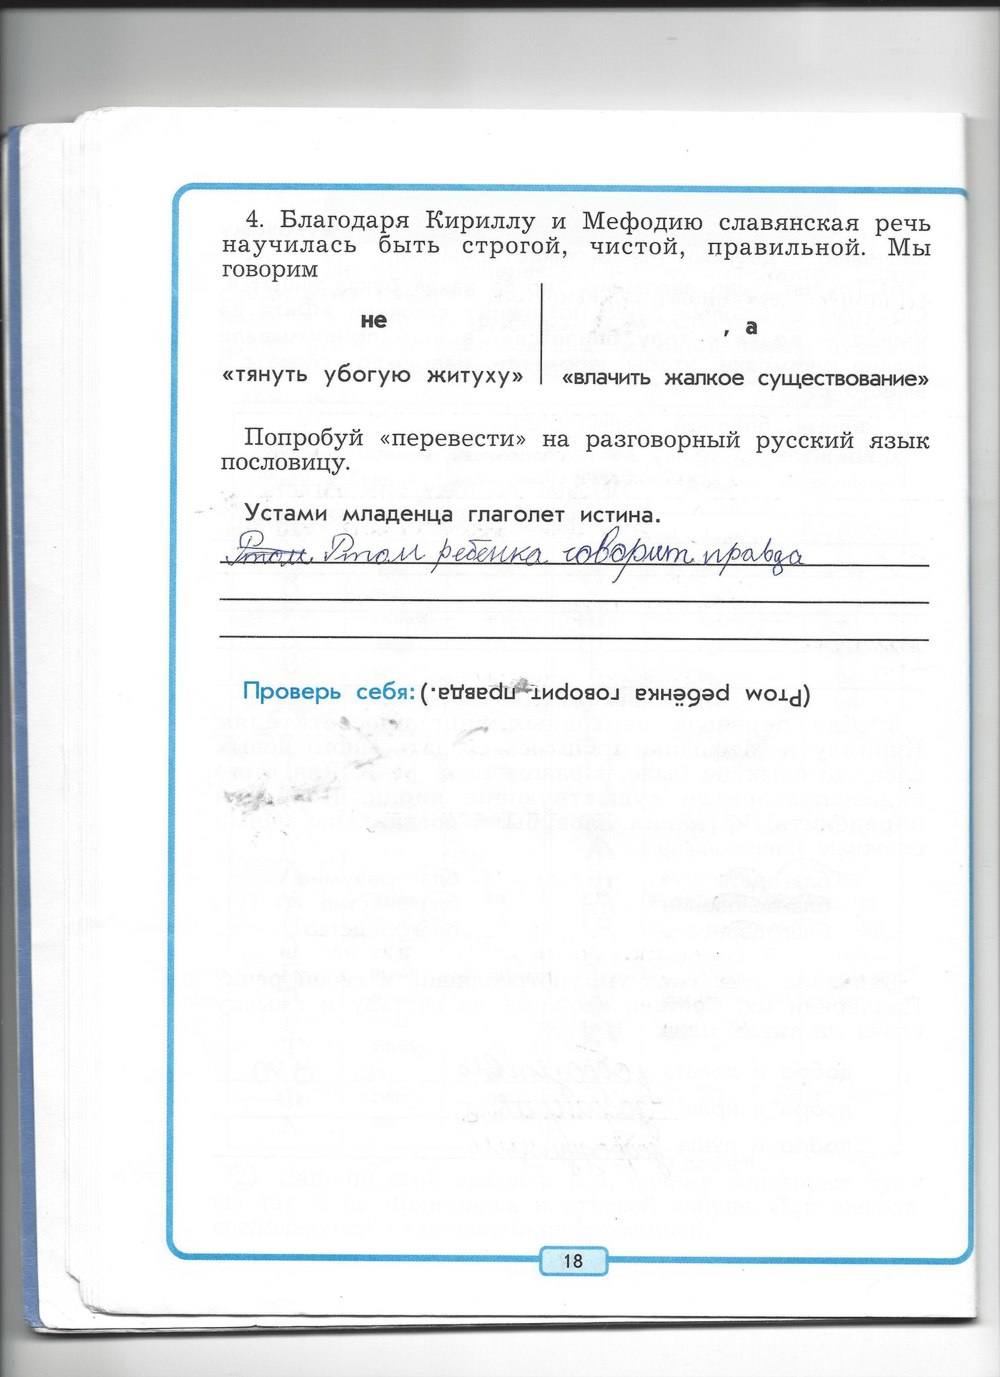 4. Благодаря Кириллу и Мефодию славянская речь
научилась быть строгой, чистой, правильной. Мы
говорим
не
, а
«тянуть убогую житуху»
«влачить жалкое существование»
Попробуй «перевести» на разговорный русский язык
пословицу.
Устами младенца глаголет истина.
Ртом Ртом ребенка говорит правда
Проверь себя: (Ртом ребёнка говорит правда.)
18